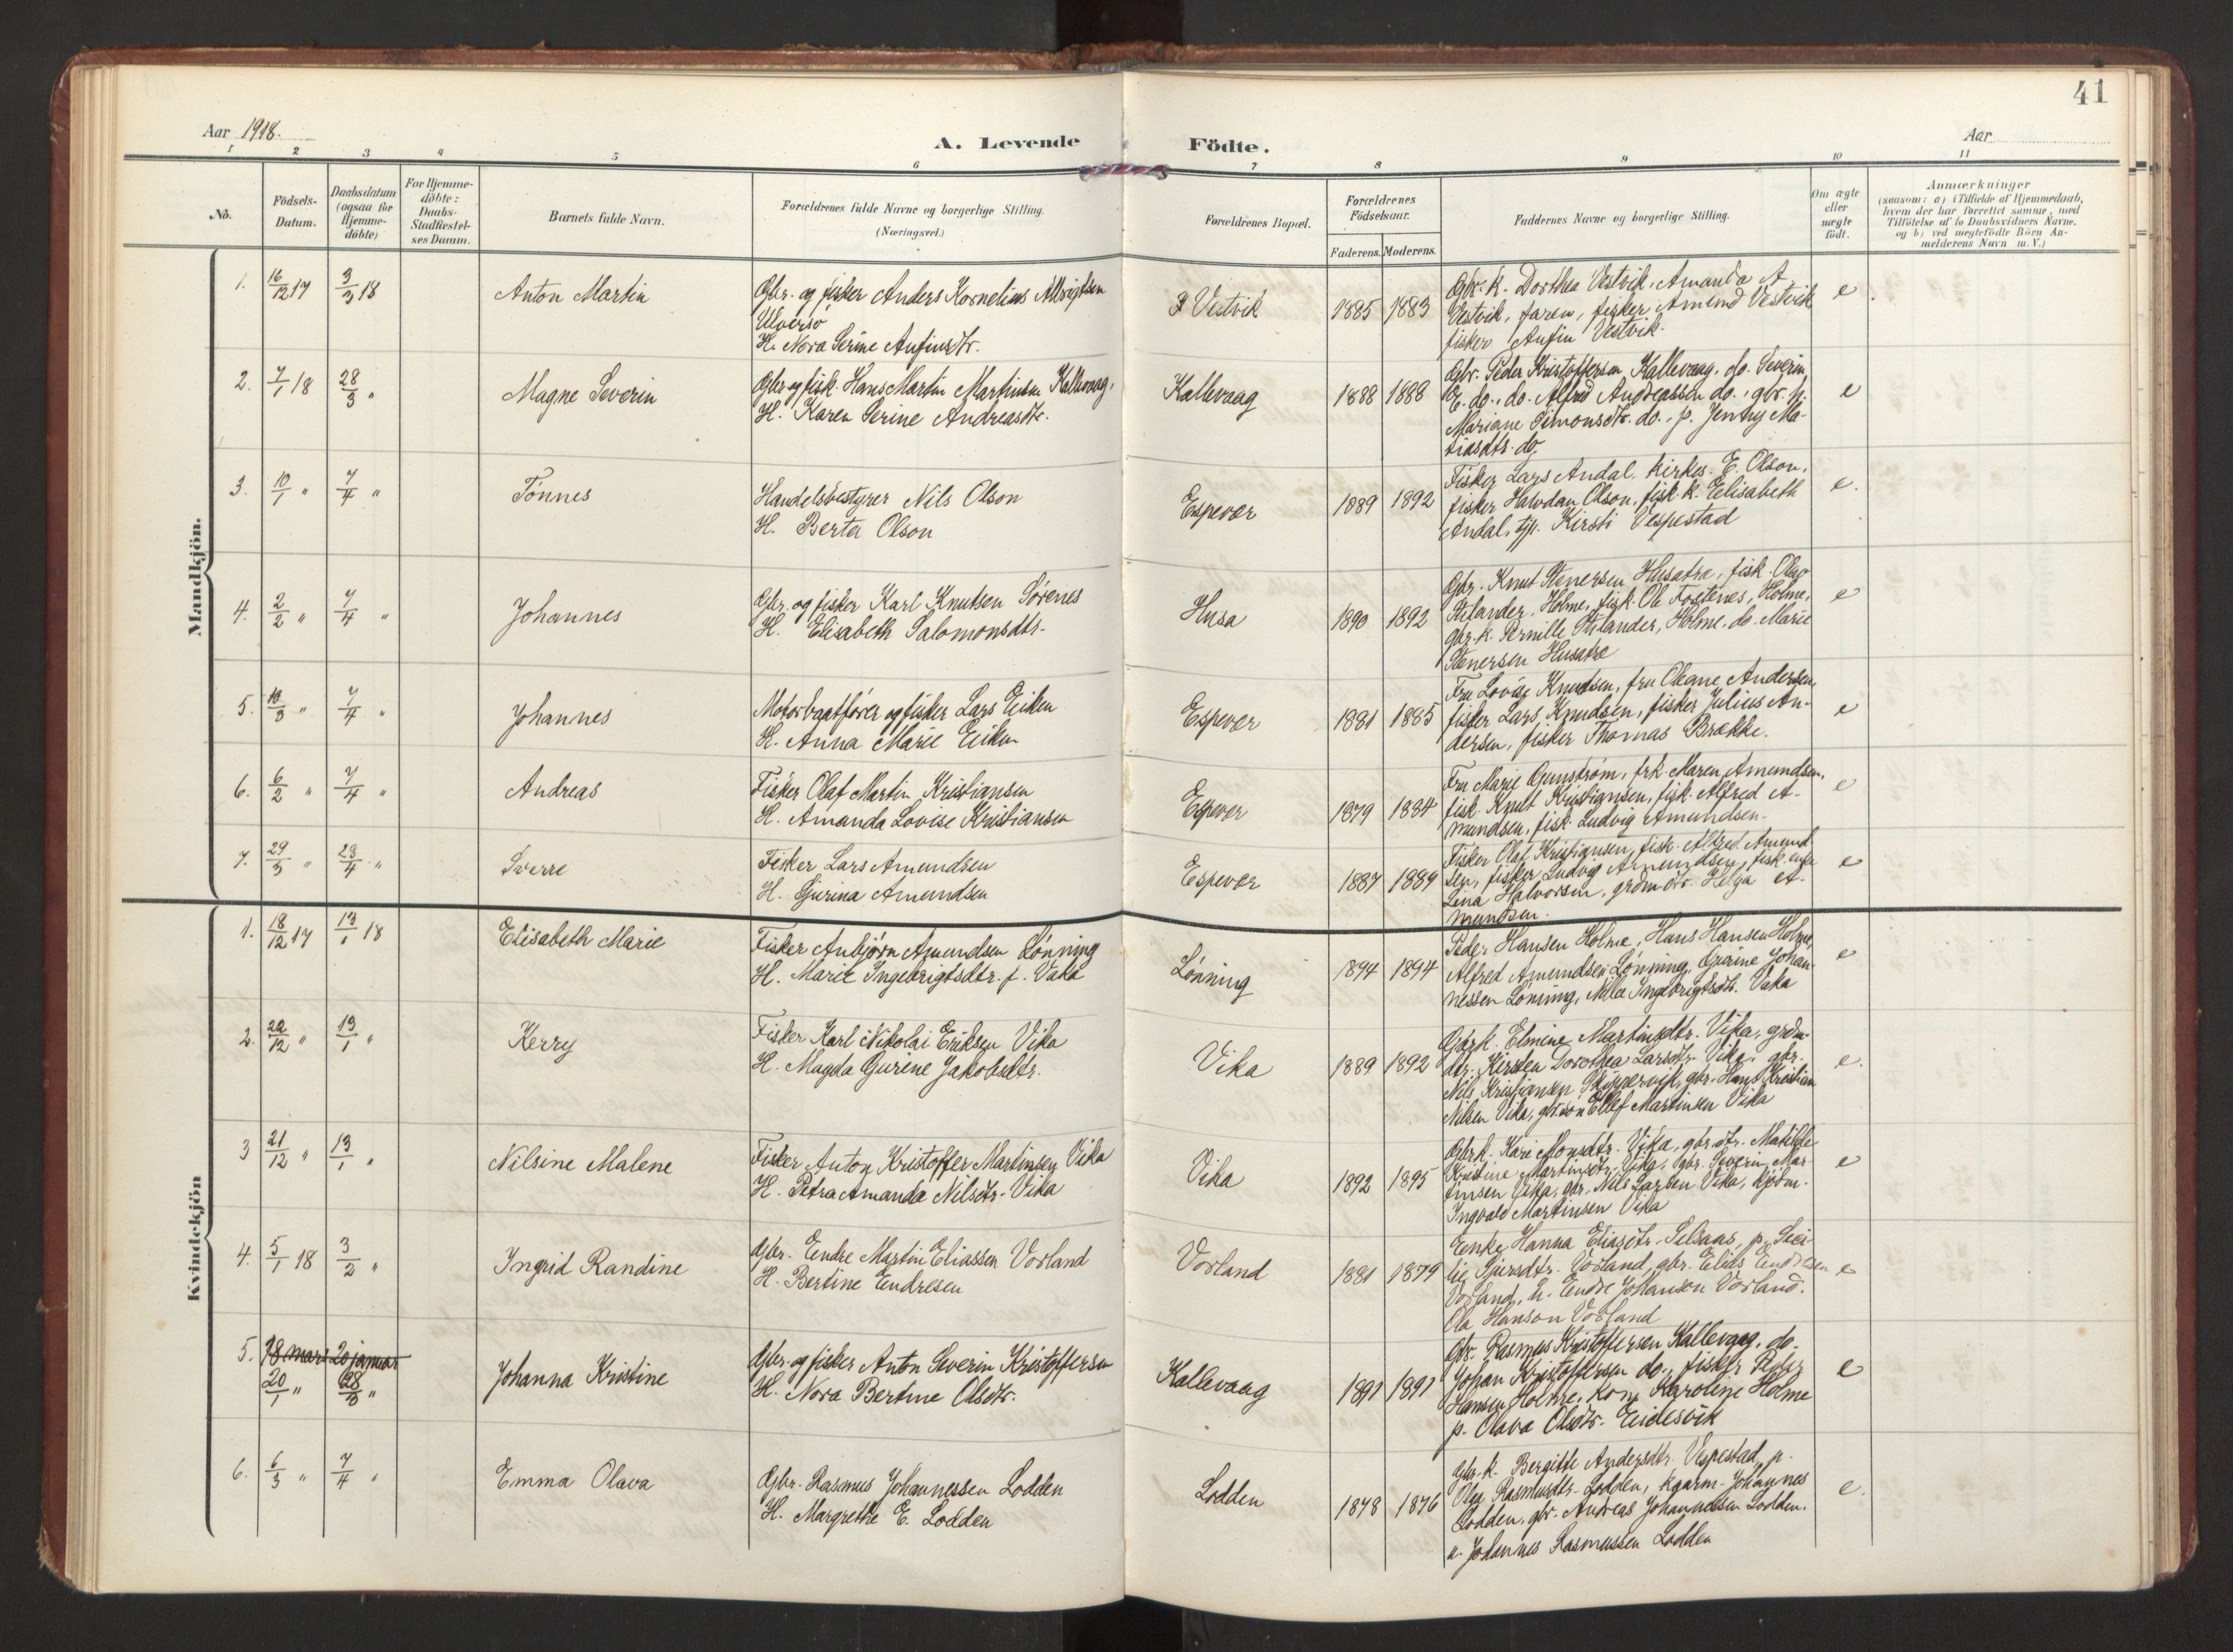 41
Aar 1918.
A. Levende
Födte.
Aar
1 2 3 4 5 6 7 8 9 10 11
No.
Födsels-
Datum.
Daabsdatum
(ogsaa for
Hjemme-
döbte)
For Hjemme-
döbte:
Daabs-
Stadfæstel-
ses Datum.
Barnets fulde Navn.
Forældrenes fulde Navne og borgerlige Stilling.
(Næringsvei.)
Forældrenes Bopæl.
Forældrenes
Födselsaar.
Faderens. Moderens.
Faddernes Navne og borgerlige Stilling.
Om ægte
eller
uægte
födt.
Anmærkninger
(saasom: a) i Tilfælde af Hjemmedaab,
hvem der har forrettet samme, med
Tilföielse af to Daabsvidners Navne.
og b) ved uægtefödte Börn An-
melderens Navn m. V.)
Mandkjön.
1. 16/12 17 3/3 18 Anton Martin
Gbr. og fisker Anders Kornelius
Ulversø
H. Nora Serine Anfinsdtr.
Vestvik 1885 1883
Gbr. k. Dorthea Vestvik, Amanda A.
Vestvik, faren, fisker Amund Vestvik
fisker Anfin Vestvik.
e
2. 7/1 18 28/3 " Magne Severin
Gbr. og fisk. Hans Martin Martinsen Kallevaag,
H. Karen Serine Andreasdtr.
Kallevaag 1888 1888
Gbr. Peder Kristoffersen Kallevaag, do. Severin
E. do., do. Alfred Andreassen do., gbr. k.
Mariane Simonsdtr. do., p. Jenny Ma-
tiasdtr. do.
e
3. 10/1 " 7/4 " Tønnes
Handelsbestyrer Nils Olson
H. Berta Olson
Espevær 1889 1892
Fisker Lars Andal, kirkes. E. Olson,
fisker Halvdan Olson, fisk. k. Elisabeth
Andal, tjp. Kirsti Vespestad
e.
4. 2/2 " 7/4 " Johannes
Gbr. og fisker Karl Knutsen Sørenes
H. Elisabeth Salomonsdtr.
Husa 1890 1892
Gbr. Knut Stenersen Husatræ, fisk. Olav
Holme, fisk. Ole Holme,
gbr. k. Pernille Holme, do. Marie
Stenersen Husatræ
e
5. 10/3 " 7/4 " Johannes
Motorbaatfører og fisker Lars Eiken
H. Anna Marie Eiken
Espevær 1881 1885
Fru Lovise Knudsen, fru Oleane Andersen,
fisker Lars Knudsen, fisker Julius An-
dersen, fisker Thomas Brække.
e
6. 6/2 " 7/4 " Andreas
Fisker Olaf Martin Kristiansen
H. Amanda Lovise Kristiansen
Espevær 1879 1884
Fru Marie Gunstrøm, frk. Maren Amundsen,
fisk. Knut Kristiansen, fisk. Alfred A-
mundsen, fisk. Ludvig Amundsen.
e
7. 29/3 " 28/4 " Sverre
Fisker Lars Amundsen
H. Gjurina Amundsen
Espevær 1887 1889
Fisker Olaf Kristiansen, fisk. Alfred Amund-
sen, fisker Ludvig Amundsen, fisk. enke
Lina Halvorsen, grdm. dtr. Helga A-
mundsen.
e
Kvindekjön
1. 18/12 17 13/1 18 Elisabeth Marie
Fisker Anbjørn Amundsen Lønning
H. Marie Ingebrigtsdtr. f. Vaka
Lønning 1894 1894
Peder Hansen Holme, Hans Hansen Holme,
Alfred Amundsen Lønning, Gjurine Johan-
nessen Lønning, Ingebrigtsdtr. Vaka
e
2. 22/12 " 13/1 " Kerry
Fisker Karl Nikolai Eriksen Vika
H. Magda Gurine Jakobsdtr.
Vika 1889 1892
Gbr. k. Elmine Martinsdtr. Vika, grdm.
dtr. Kirsten Dorothea Larsdtr. Vika, gbr.
Nils Kristiansen Skippervik, gbr. Hans Kristian
Nilsen Vika, gbr. søn Ellef Martinsen Vika
e.
3 21/12 " 13/1 " Nilsine Malene
Fisker Anton Kristoffer Martinsen Vika
H. Petra Amanda Nilsdtr. Vika
Vika 1892 1895
Gbr. k. Kari Monsdtr. Vika, gbr. dtr. Matilde
Kristine Martinsdtr. Vika, gbr. Severin Mar-
tinsen Vika, gbr. Nils Larsen Vika,
Ingvald Martinsen Vika
e
4. 5/1 18 3/2 " Ingrid Randine
Gbr. Endre Martin Eliassen Vorland
H. Bertine Endresen
Vorland 1881 1879
Enke Hanna Eliasdtr. Selsaas, p.
Gjersdtr. Vorland, gbr. Elias Endresen
Vorland, u. Endre Johanson Vorland.
Ola Hanson Vorland
e
5. 18 mars 20 januar
20/1 " 28/3 " Johanna Kristine
Gbr. og fisker Anton Severin Kristoffersen
H. Nora Bertine Olsdtr.
Kallevaag 1891 1891
Gbr. Rasmus Kristoffersen Kallevaag, do.
Johan Kristoffersen do., fisker Peder
Hansen Holme, kone Karoline Holme
p. Olava Olsdtr. Eidesvik
e
6. 6/3 " 7/4 " Emma Olava
Gbr. Rasmus Johannessen Lodden
H. Margrethe E. Lodden
Lodden 1878 1876
Gbr. k. Bergitte Andersdtr. Vespestad, p.
Olga Rasmusdtr. Lodden, kaarm. Johannes
Lodden, gbr. Andreas Johannessen Lodden.
u. Johannes Rasmussen Lodden
e.